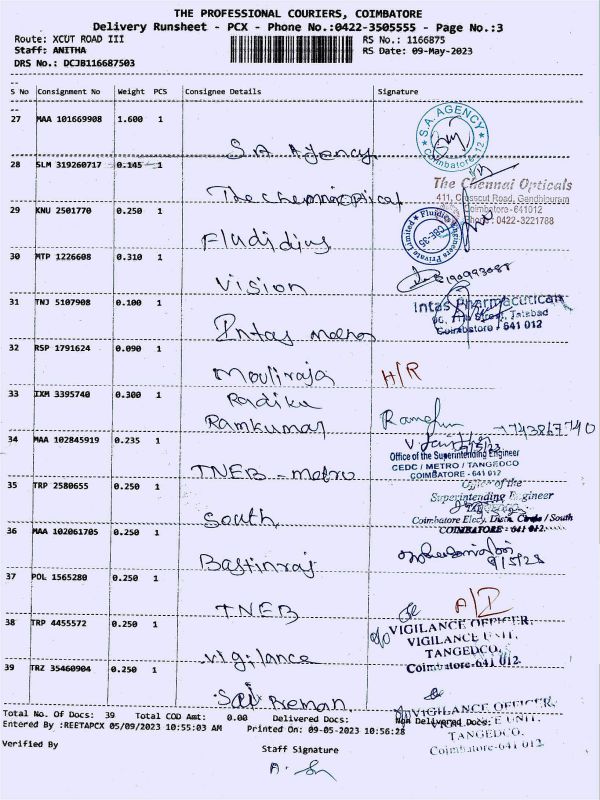 THE PROFESSIONAL COURIERS, COIMBATORE
Delivery Runsheet - PCX - Phone No.:0422-3505555 - Page No.:3
Route: XCUT ROAD III
RS No.: 1166875
Staff: ANITHA
RS Date: 09-May-2023
DRS No.: DCJB116687503
S No Consignment No Weight PCS Consignee Details Signature
27 MAA 101669908 1.600 1
S.A Agency
S.A. AGENCY
Coimbatore-12
28 SLM 319260717 0.145 1
The Chennai Opticals
411, Crosscut Road, Gandhipuram
Coimbatore-641012
Phone: 0422-3221788
29 KNU 2501770 0.250 1
Fludidius
Fluidics Engineers Private Limited
CBE-35
30 MTP 1226608 0.310 1
Vision
31 TNJ 5107908 0.100 1
Intas
Intas Pharmaceuticals
Coimbatore - 641 012
32 RSP 1791624 0.090 1
Mouliraja
H/R
33 IXM 3395740 0.300 1
Radika
Ramkumar
34 MAA 102845919 0.235 1
TNEB - Metro
Office of the Superintending Engineer
CEDC / METRO / TANGEDCO
COIMBATORE - 641 012
35 TRP 2580655 0.250 1
South
Office of the
Superintending Engineer
Coimbatore Elecy. Distn. Circle / South
COIMBATORE - 641 012.
36 MAA 102061705 0.250 1
Bastinraj
9/5/23
37 POL 1565280 0.250 1
TNEB
38 TRP 4455572 0.250 1
Vigilance
VIGILANCE OFFICER,
VIGILANCE UNIT,
TANGEDCO,
Coimbatore-641 012.
39 TRZ 35460904 0.250 1
VIGILANCE OFFICER,
VIGILANCE UNIT,
TANGEDCO,
Coimbatore-641 012.
Total No. Of Docs: 39 Total COD Amt: 0.00 Delivered Docs: Non Delivered Docs:
Entered By :REETAPCX 05/09/2023 10:55:03 AM Printed On: 09-05-2023 10:56:28
Verified By
Staff Signature